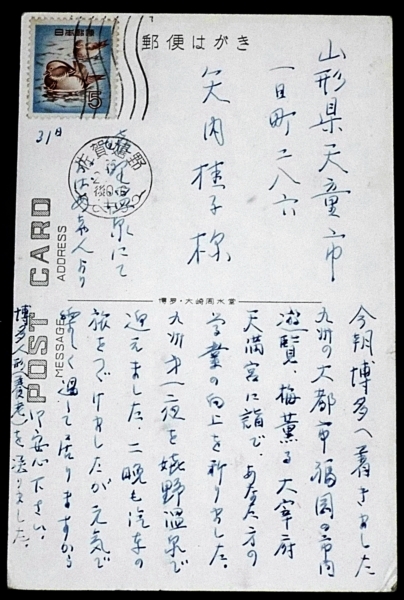 日本郵便
5
郵便はがき
山形県天童市
一日町二八六
矢内桂子様
佐賀嬉野
嬉野温泉にて
31日
POST CARD
ADDRESS
MESSAGE
博多・大崎周水堂
今朝博多へ着きました
九州の大都市福岡の市内
遊覧、梅薫る太宰府
天満宮に詣で、あなた方の
学業の向上を祈りました。
九州第一夜を嬉野温泉で
迎えました。二晩も汽車の
旅をつづけましたが元気で
楽しく過して居りますから
御安心下さい。
博多人形を送りました。